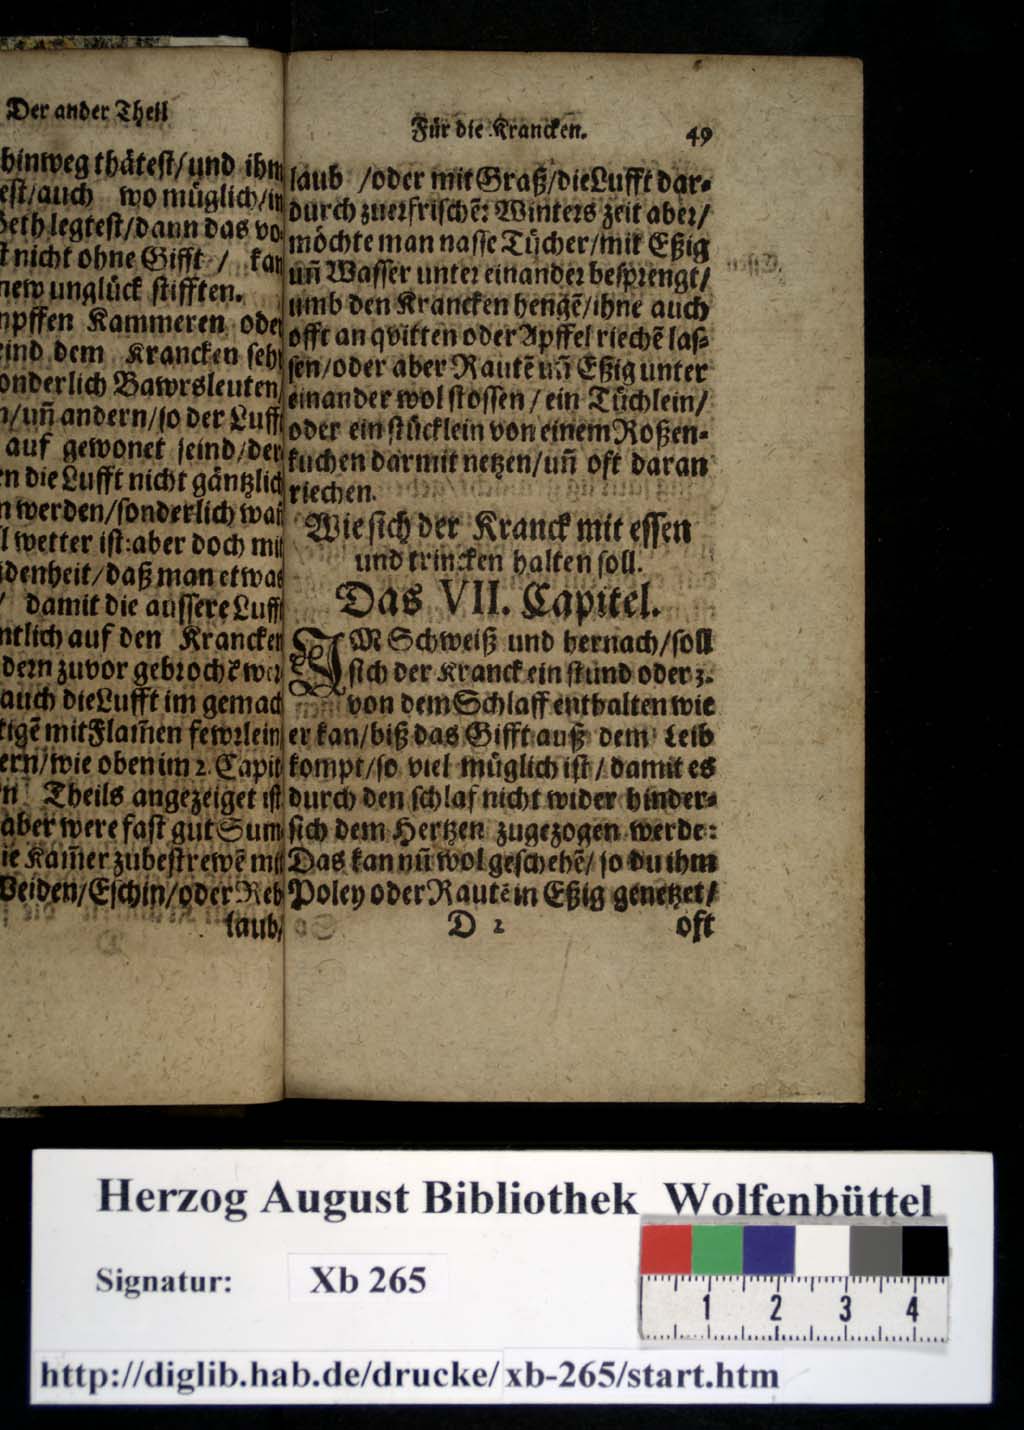 Der ander Theil
hinweg thätest/und ihm
est/auch wo müglich/in
beth legtest/dann das vo
nicht ohne Gifft / kan
new unglück stifften.
mpffen Kammeren ode
eind dem Krancken sehr
onderlich Bawrsleuten/
n/uñ andern/so der Lufft
auf gewonet seind/der
en die Lufft nicht gäntzlich
n werden/sonderlich wañ
l wetter ist:aber doch mit
idenheit/daß man etwas
/ damit die aussere Lufft
ntlich auf den Krancken
dern zuvor gebrochẽ wer
auch die Lufft im gemach
tigẽ mit Flam̃en fewrlein
ern/wie oben im 2. Capit
n Theils angezeiget ist
aber were fast gut Sum
ie Kam̃er zubestrewẽ mit
Weiden/Eschin/oder Reb
laub/
Für die Krancken. 49
laub /oder mit Graß/die Lufft dar-
durch zuerfrischẽ: Winters zeit aber/
möchte man nasse Tücher/mit Eßig
uñ Wasser unter einander besprengt/
umb den Krancken hengẽ/ihne auch
offt an qvitten oder Apffel riechẽ las-
sen/oder aber Rautẽ uñ Eßig unter
einander wol stossen / ein Tüchlein/
oder ein stücklein von einem Roßen-
kuchen darmit netzen/uñ oft daran
riechen.
Wie sich der Kranck mit essen
und trincken halten soll.
Das VII. Capitel.
IM Schweiß und hernach/soll
sich der Kranck ein stund oder 3.
von dem Schlaff enthalten wie
er kan/biß das Gifft auß dem Leib
kompt/so viel müglich ist/damit es
durch den schlaf nicht wider hinder-
sich dem Hertzen zugezogen werde:
Das kan nũ wol geschehẽ/ so du ihm
Poley oder Rautẽ in Eßig genetzet/
D 2 oft
Herzog August Bibliothek Wolfenbüttel
Signatur: Xb 265
1 2 3 4
http://diglib.hab.de/drucke/xb-265/start.htm